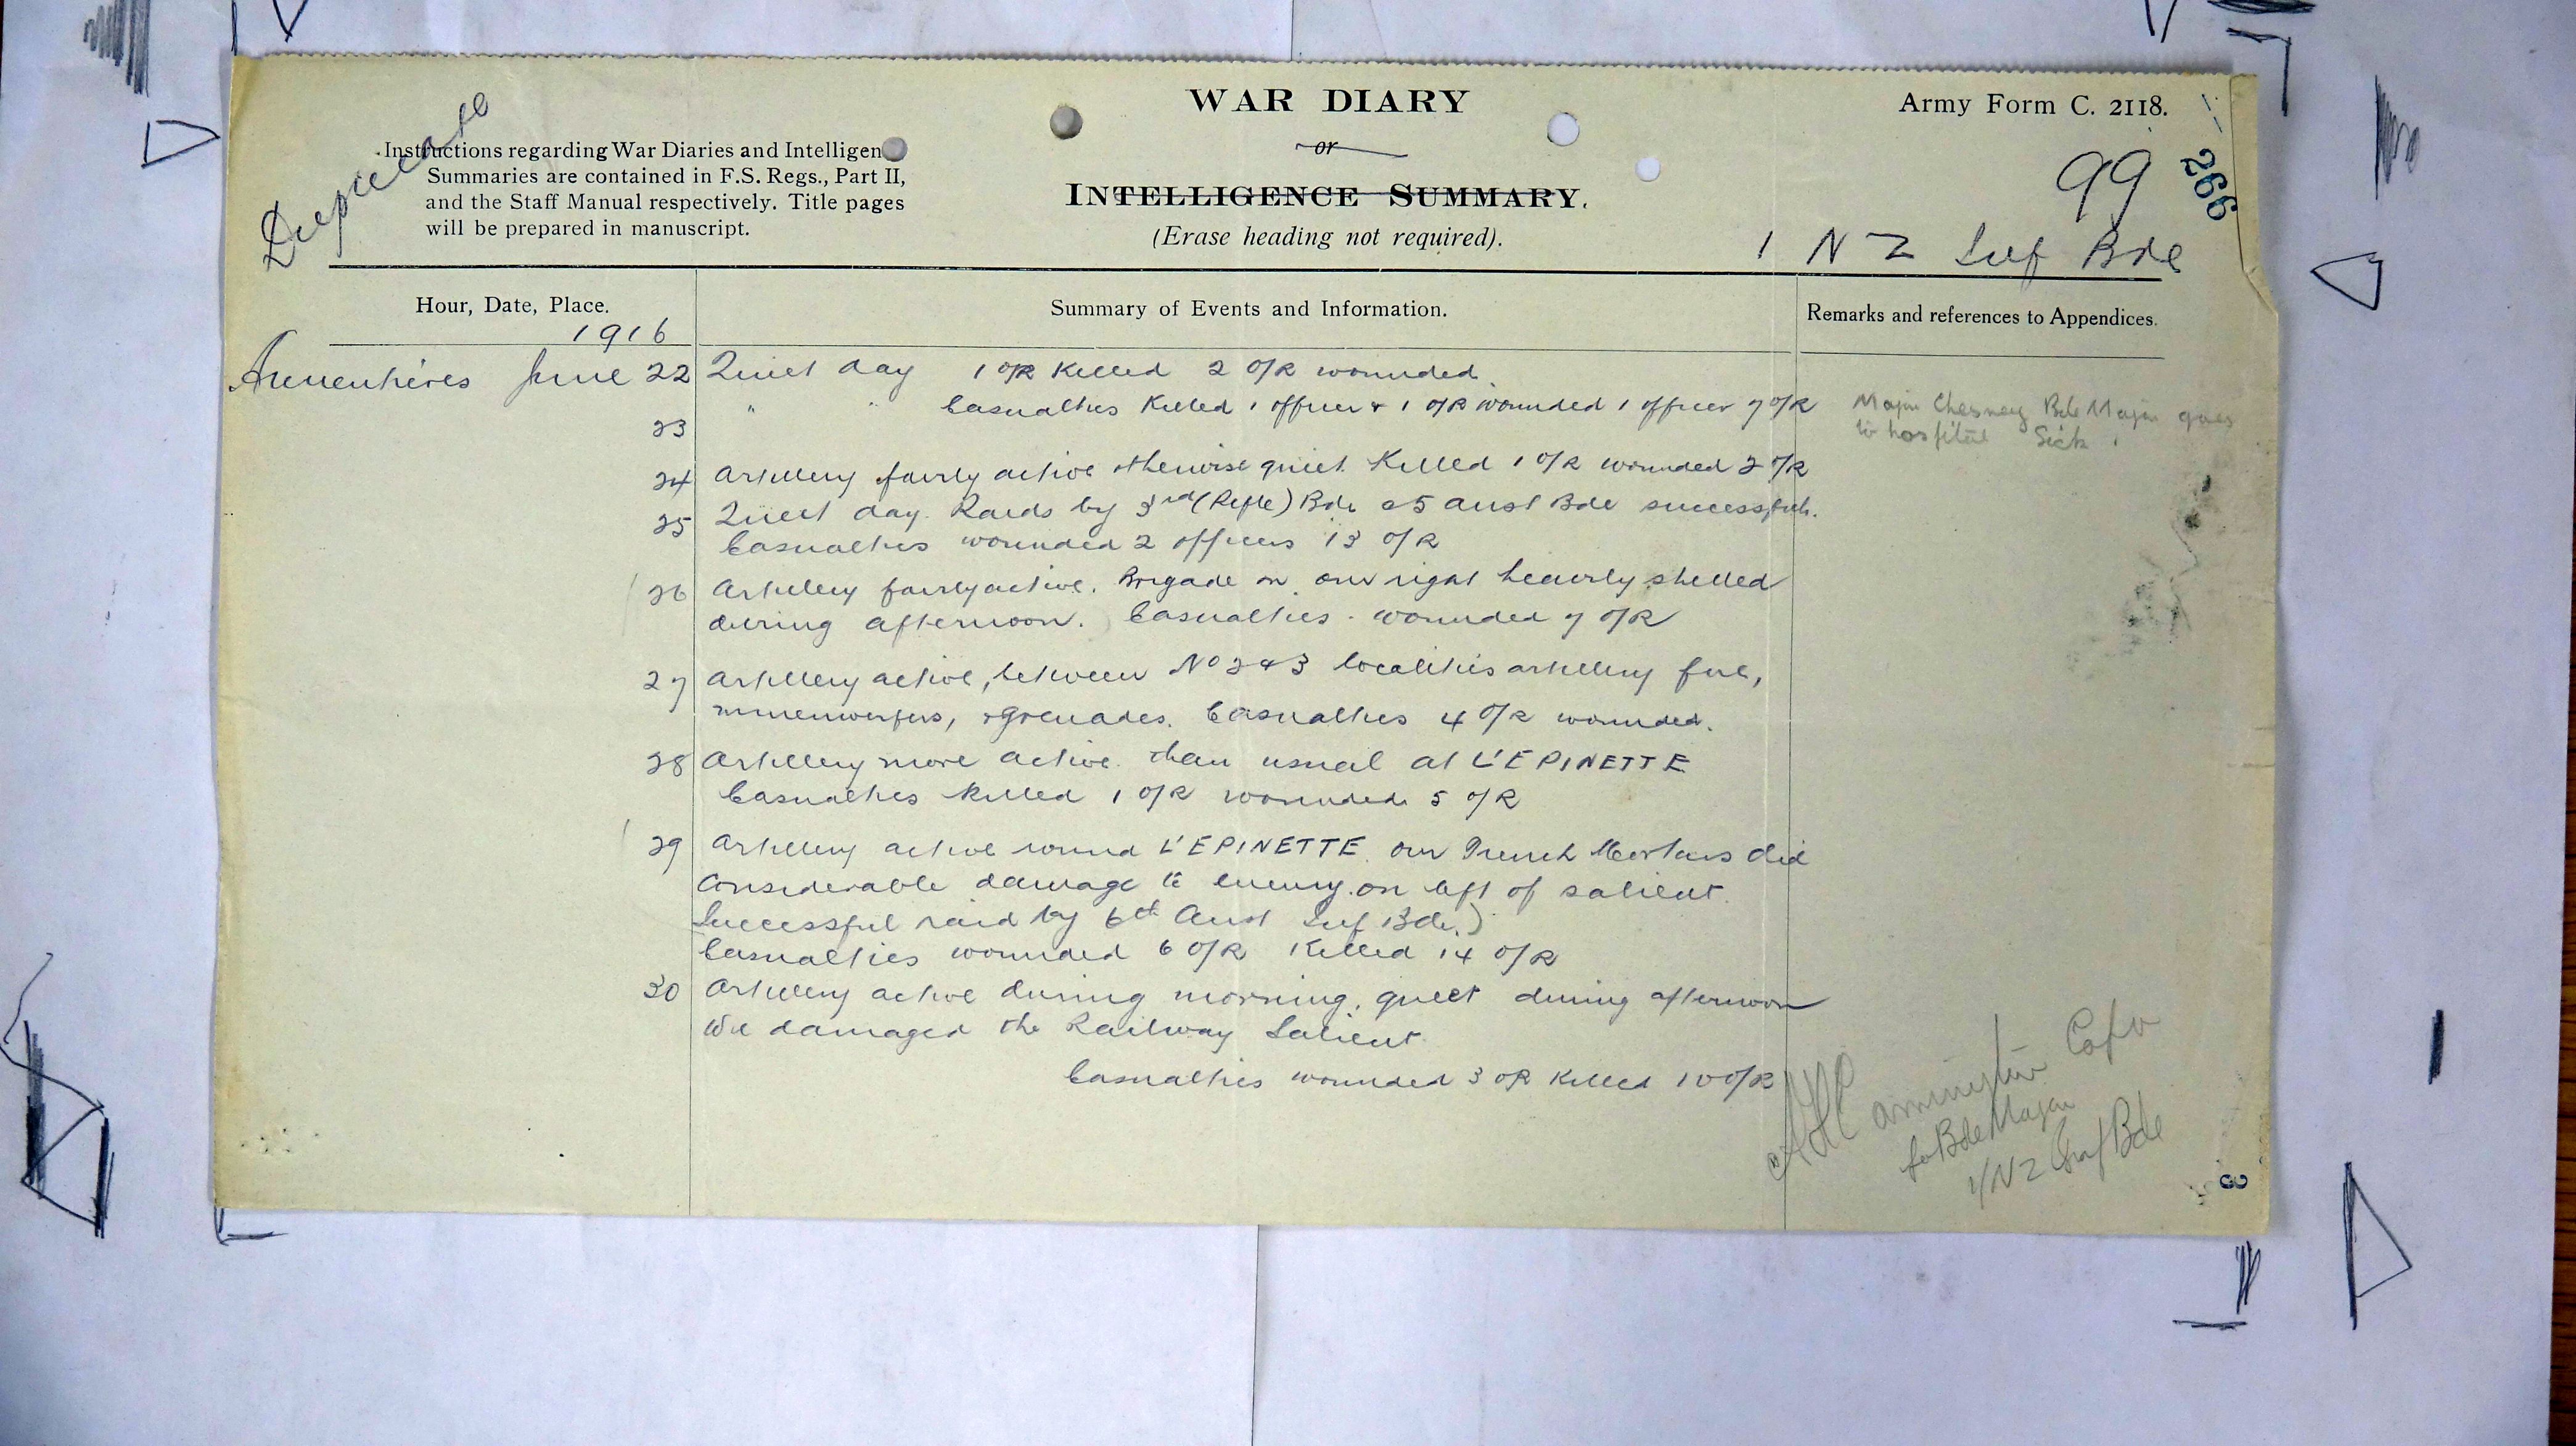 Duplicate
Instructions regarding War Diaries and Intelligence
Summaries are contained in F.S. Regs., Part II,
and the Staff Manual respectively. Title pages
will be prepared in manuscript.
WAR DIARY
or
INTELLIGENCE SUMMARY.
(Erase heading not required).
Army Form C. 2118.
99
266
1 NZ Inf Bde
Hour, Date, Place.
Summary of Events and Information.
Remarks and references to Appendices.
1916
Armentières June 22 Quiet day 1 O/R Killed 2 O/R wounded.
23 " " Casualties Killed 1 officer & 1 O/R wounded 1 officer 7 O/R
Major Chesney Bde Major goes
to hospital Sick.
24 Artillery fairly active otherwise quiet. Killed 1 O/R wounded 2 O/R
25 Quiet day. Raids by 3rd (Rifle) Bde & 5 Aust Bde successful.
Casualties wounded 2 officers 13 O/R
26 Artillery fairly active. Brigade on our right heavily shelled
during afternoon. Casualties - wounded 7 O/R
27 Artillery active, between No 2 & 3 localities artillery fire,
minenwerfers, & grenades. Casualties 4 O/R wounded.
28 Artillery more active than usual at L'EPINETTE
Casualties killed 1 O/R wounded 5 O/R
29 Artillery active round L'EPINETTE. Our Trench Mortars did
considerable damage to enemy on left of salient.
Successful raid by 6th Aust Inf Bde.)
Casualties wounded 6 O/R Killed 14 O/R
30 Artillery active during morning, quiet during afternoon
We damaged the Railway Salient.
Casualties wounded 3 OR Killed 10 O/R
Capt
for Bde Major
1/NZ Inf Bde
3